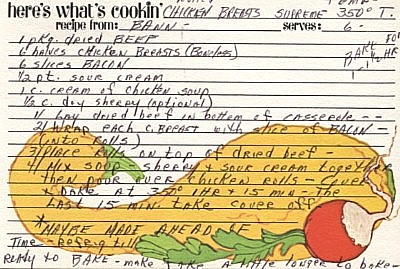 TEMP -
here's what's cookin' CHICKEN BREASTS SUPREME 350° T.
recipe from: BANN - serves: 6 -
1 pkg. dried BEEF FO
6 halves CHICKEN BREASTS (Boneless) BAKE 1 1/2 HR
6 slices BACON
1/2 pt. sour cream
1 c. cream of chicken soup
1/2 c. dry sherry (optional)
1/ Lay dried beef in bottom of casserole - -
2/ WRAP each c. BREAST with slice of BACON -
(into Rolls)
3/ Place rolls on top of dried beef -
4/ Mix soup - sherry + sour cream together
then pour over chicken rolls - cover
* bake at 350° 1 HR + 15 min - The
LAST 15 min. take cover off
* MAYBE MADE AHEAD OF
Time - Refrig till
READY to BAKE - make take A little longer to bake -